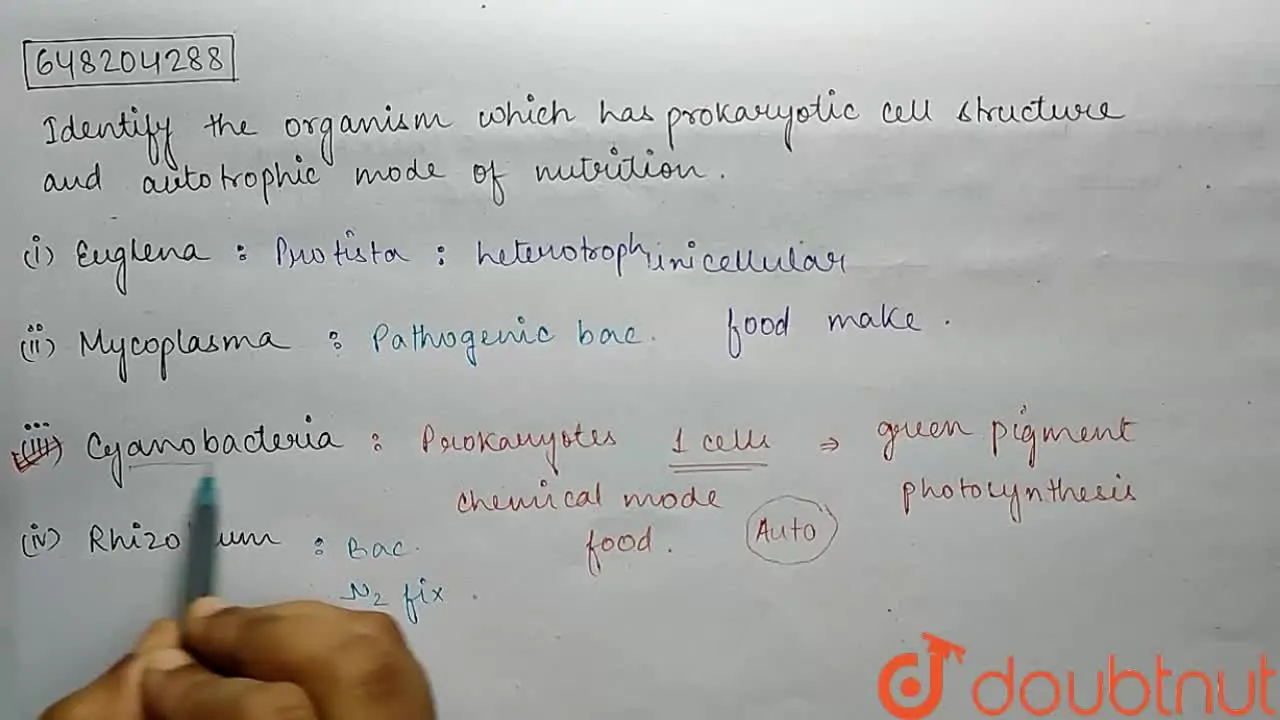 648204288
Identify the organism which has prokaryotic cell structure
and autotrophic mode of nutrition.
(i) Euglena : Protista : heterotroph unicellular
(ii) Mycoplasma : Pathogenic bac. food make.
(iii) Cyanobacteria : Prokaryotes 1 cells ⇒ green pigment
chemical mode photosynthesis
food. Auto
(iv) : Bac.
N2 fix.
doubtnut